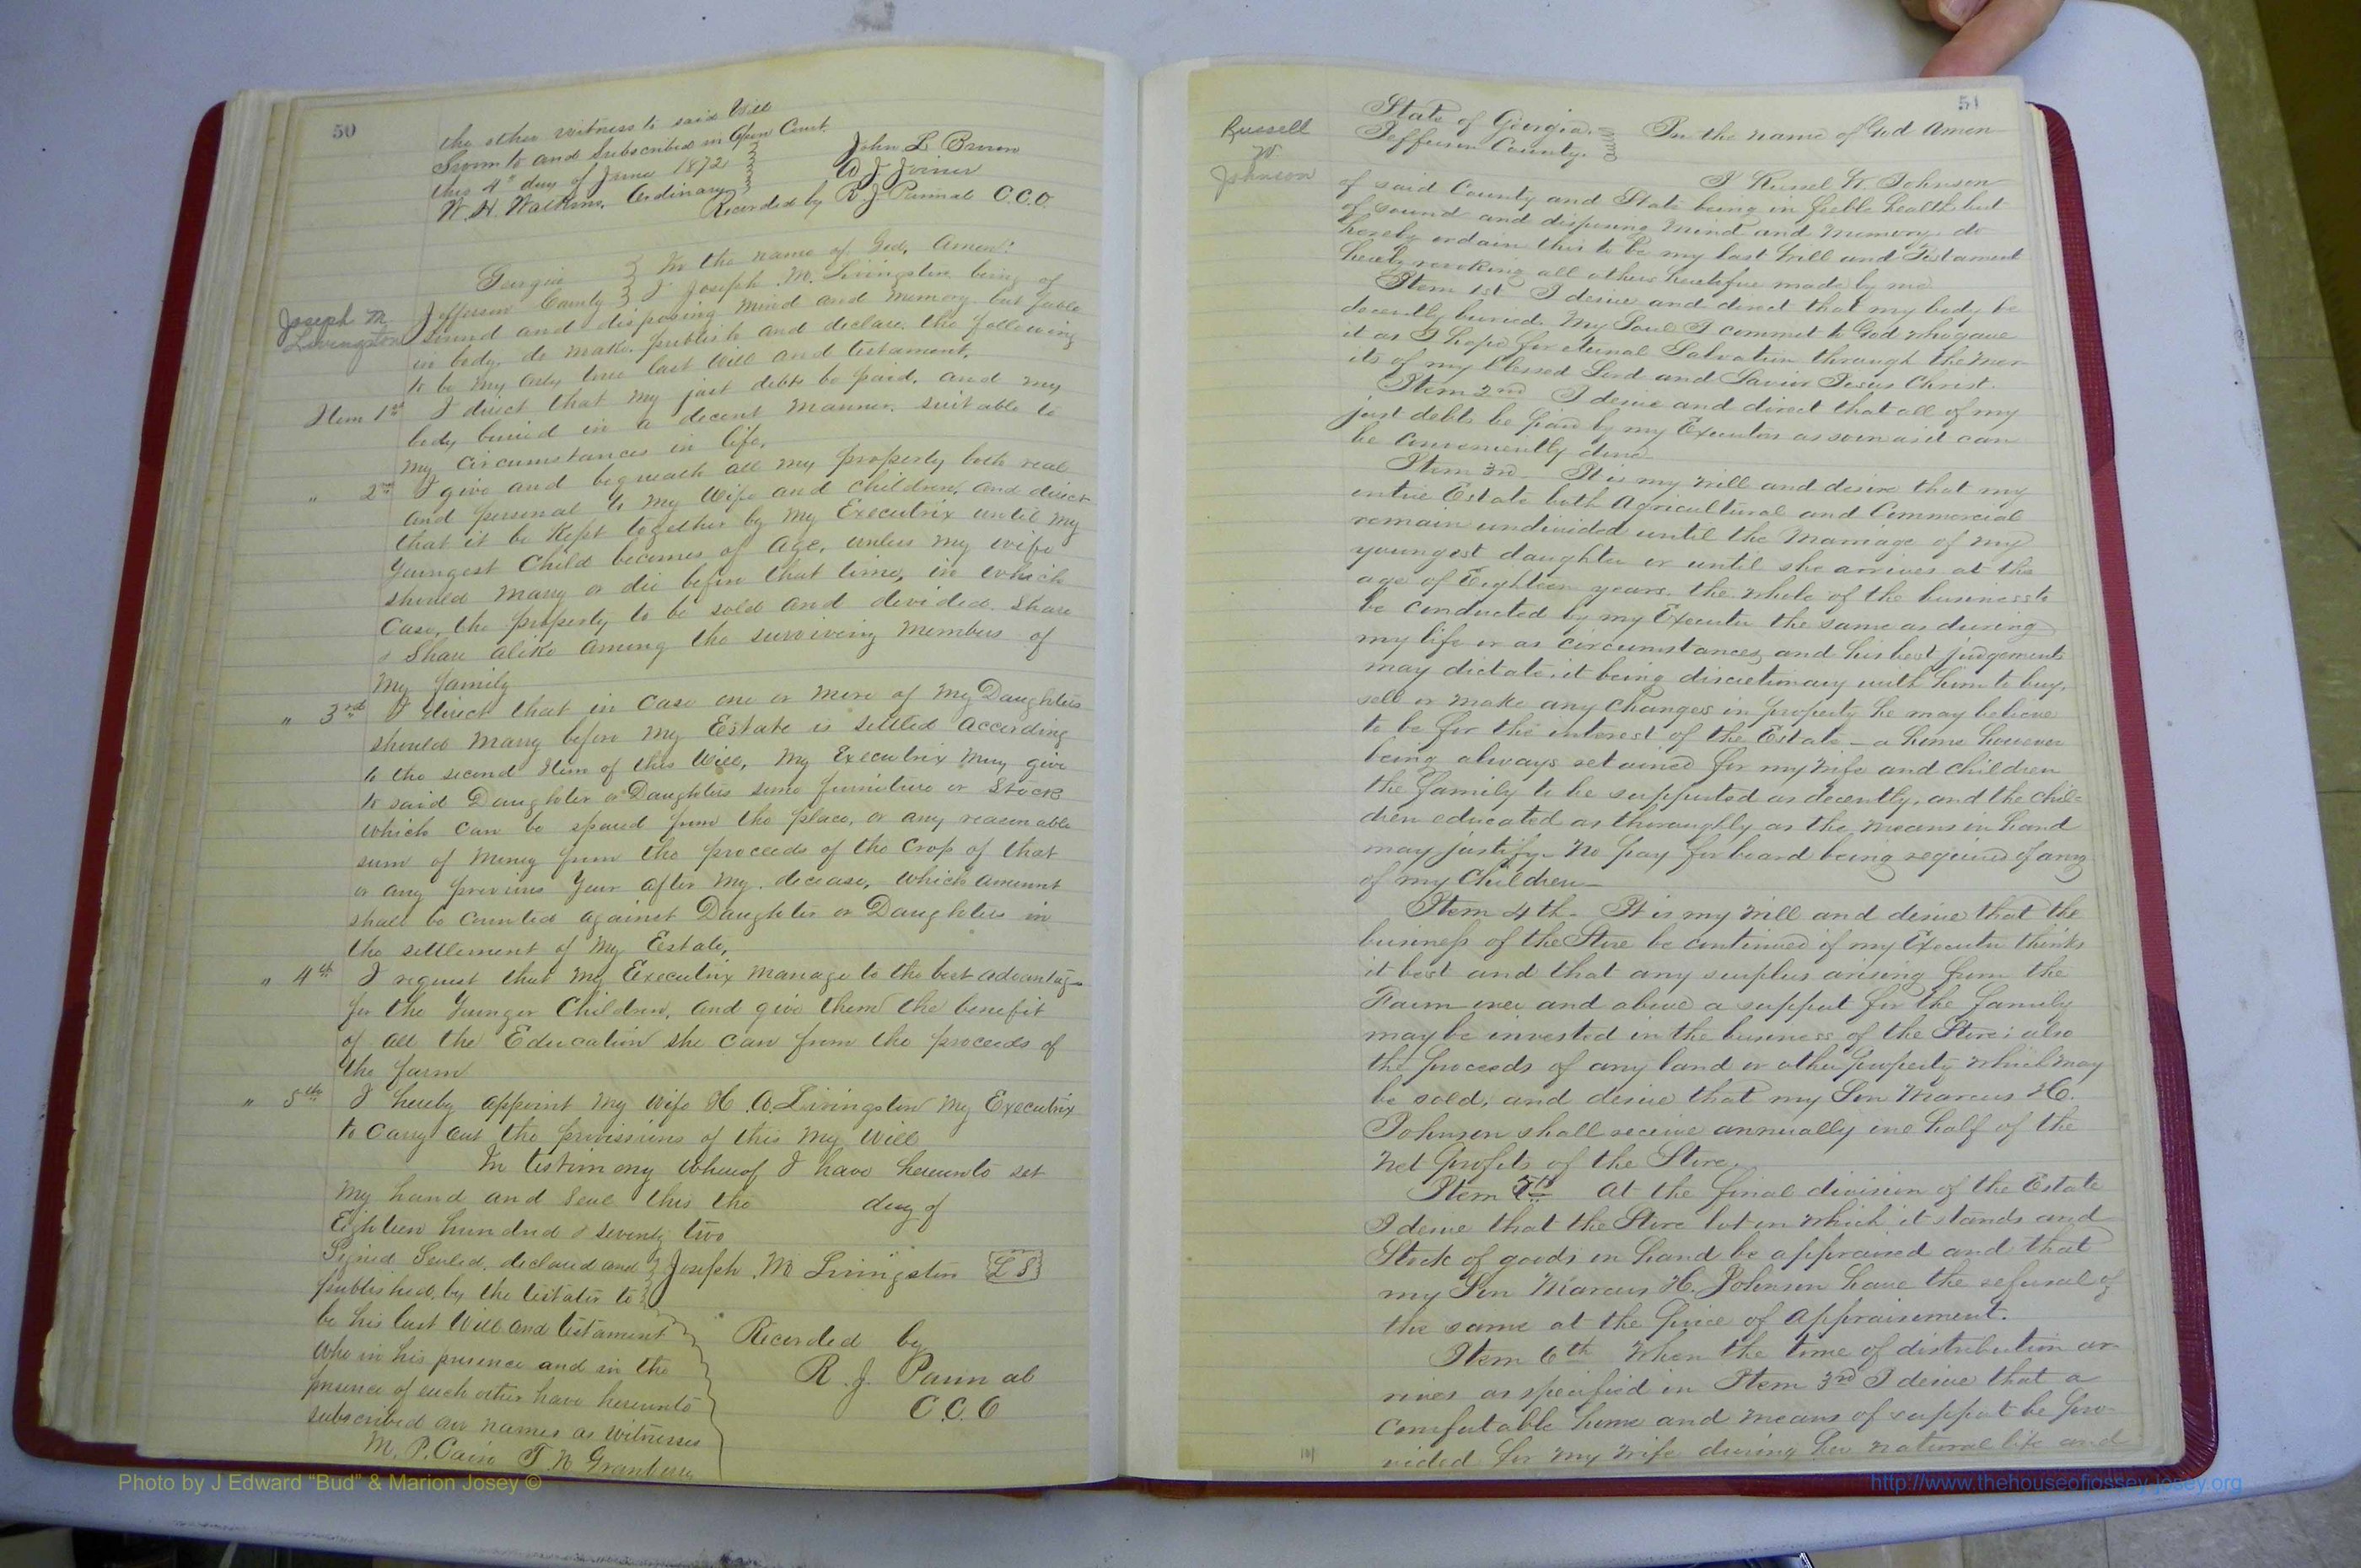 50
the other witness to said Will
Sworn to and Subscribed in Open Court
this 4th day of June 1872
W. H. Watkins, Ordinary
John L Brown
W J Joiner
Recorded by R. J. Pannal C.C.O.
Georgia } In the name of God, Amen!
Jefferson County } I Joseph M. Livingston being of
Joseph M.
Livingston
sound and disposing mind and memory but feeble
in body, do make, publish and declare, the following
to be my only true last will and testament.
Item 1st I direct that my just debts be paid, and my
body buried in a decent manner, suitable to
my circumstances in life.
" 2nd I give and bequeath all my property both real
and personal to my Wife and children, and direct
that it be Kept together by my Executrix until my
Youngest Child becomes of age, unless my wife
should marry or die before that time, in which
case, the property to be sold and divided share
& share alike among the surviving members of
My family
" 3rd I direct that in case one or more of my Daughters
should marry before my Estate is settled according
to the second Item of this Will, my Executrix may give
to said Daughter or Daughters some furniture or Stock
which can be spared from the place, or any reasonable
sum of money from the proceeds of the crop of that
or any previous Year after my decease, which amount
shall be counted against Daughter or Daughters in
the settlement of my Estate,
" 4th I request that my Executrix manage to the best advantage
for the Younger Children, and give them the benefit
of all the Education she can from the proceeds of
the farm
" 5th I hereby appoint my wife H. A. Livingston my Executrix
to carry out the provissions of this my Will
In testimony whereof I have hereunto set
my hand and Seal this the day of
Eighteen hundred & seventy two
Signed Sealed, declared and } Joseph M Livingston L S
published, by the testator to
be his last Will and testament
who in his presence and in the
presence of each other have hereunto
subscribed our names as witnesses
M. P. Cain T. N Granberry
Recorded by
R. J. Pannal
C.C.O
51
Russell
W.
Johnson
State of Georgia. In the name of God Amen
Jefferson County.
I Russel W. Johnson
of said County and State being in feeble health but
of sound and disposing mind and memory, do
hereby ordain this to be my last Will and Testament
hereby revoking all others heretofore made by me
Item 1st I desire and direct that my body be
decently buried. My Soul I commit to God who gave
it as I hope for eternal Salvation through the mer-
its of my blessed Lord and Savior Jesus Christ.
Item 2nd I desire and direct that all of my
just debts be paid by my Executor as soon as it can
be conveniently done
Item 3rd It is my will and desire that my
entire Estate both Agricultural and Commercial
remain undivided until the Marriage of my
youngest daughter or until she arrives at the
age of Eighteen years. the whole of the business to
be conducted by my Executor the same as during
my life or as circumstances, and his best judgements
may dictate, it being discretionary with him to buy,
sell or make any changes in property he may believe
to be for the interest of the Estate - a home however
being always retained for my wife and children
the family to be supported as decently, and the chil=
dren educated as thoroughly as the means in hand
may justify - no pay for board being required of any
of my Children -
Item 4th - It is my will and desire that the
business of the Store be continued if my Executor thinks
it best and that any surplus arising from the
Farm over and above a support for the family
may be invested in the business of the Store; also
the proceeds of any land or other property which may
be sold, and desire that my Son Marcus H.
Johnson shall receive annually one half of the
net profits of the Store.
Item 5th At the final division of the Estate
I desire that the Store lot on which it stands and
Stock of goods on hand be appraised and that
my Son Marcus H. Johnson have the refusal of
the same at the price of appraisement.
Item 6th When the time of distribution ar
rives as specified in Item 3rd I desire that a
comfortable home and means of support be pro-
vided for my wife during her natural life and
Photo by J Edward "Bud" & Marion Josey ©
http://www.thehouseofjossey-josey.org